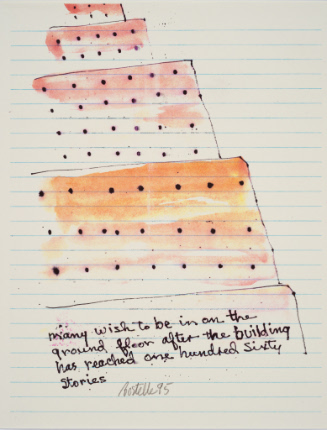 many wish to be in on the
ground floor after the building
has reached one hundred sixty
stories
Bostelle 95